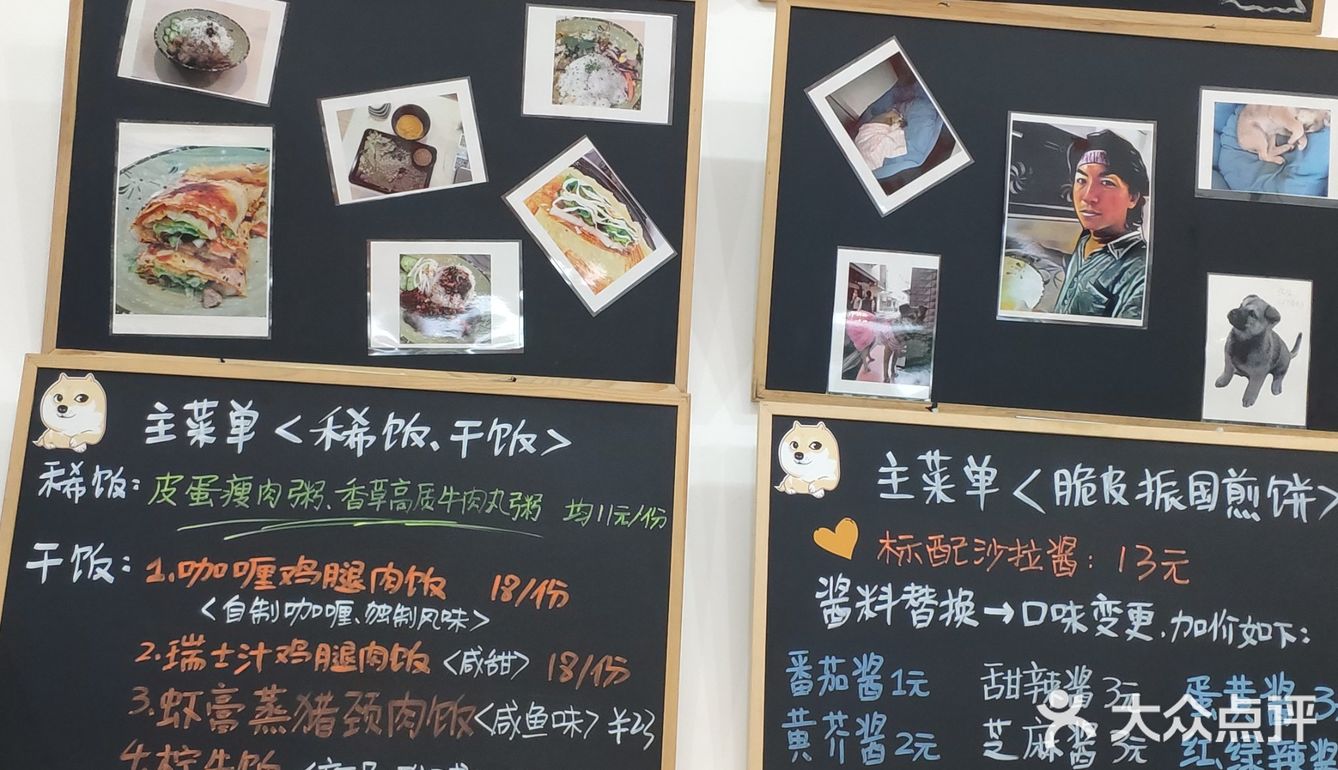 主菜单<稀饭、干饭>
稀饭:皮蛋瘦肉粥、香草高质牛肉丸粥 均11元/份
干饭:1.咖喱鸡腿肉饭 18/份
<自制咖喱、独制风味>
2.瑞士汁鸡腿肉饭<咸甜> 18/份
3.虾膏蒸猪颈肉饭<咸鱼味>¥23
主菜单<脆皮振国煎饼>
标配沙拉酱:13元
酱料替换→口味变更,加价如下:
番茄酱1元 甜辣酱3元
黄芥酱2元 芝麻酱3元 红绿辣酱
大众点评